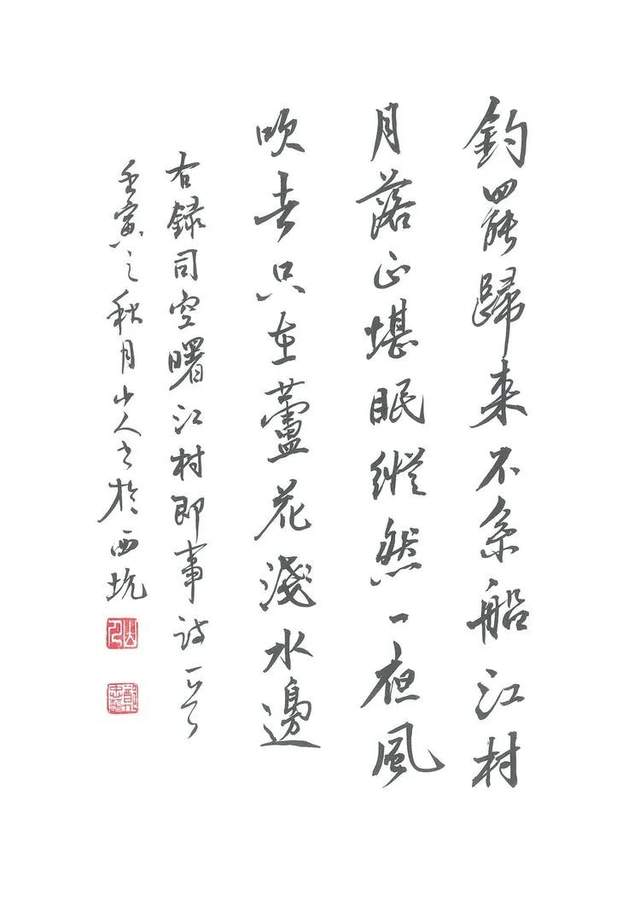 釣罷歸來不系船江村
月落正堪眠縱然一夜風
吹去只在蘆花淺水邊
右録司空曙江村即事詩一首
壬寅之秋月山人書於西坑
山人